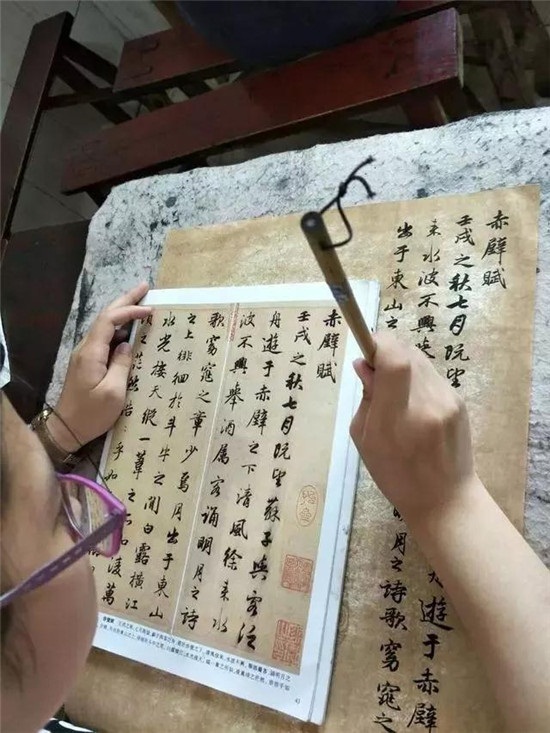 赤壁賦
壬戌之秋七月既望
遊于赤壁
來水波不興
明月之詩歌窈窕之
出于東山之
赤壁賦
壬戌之秋七月既望蘇子與客泛
舟遊于赤壁之下清風徐來水
波不興舉酒属客誦明月之詩
歌窈窕之章少焉月出于東山
之上徘徊於斗牛之間白露橫江
水光接天縱一葦之所如凌萬
頃之茫然浩浩乎如